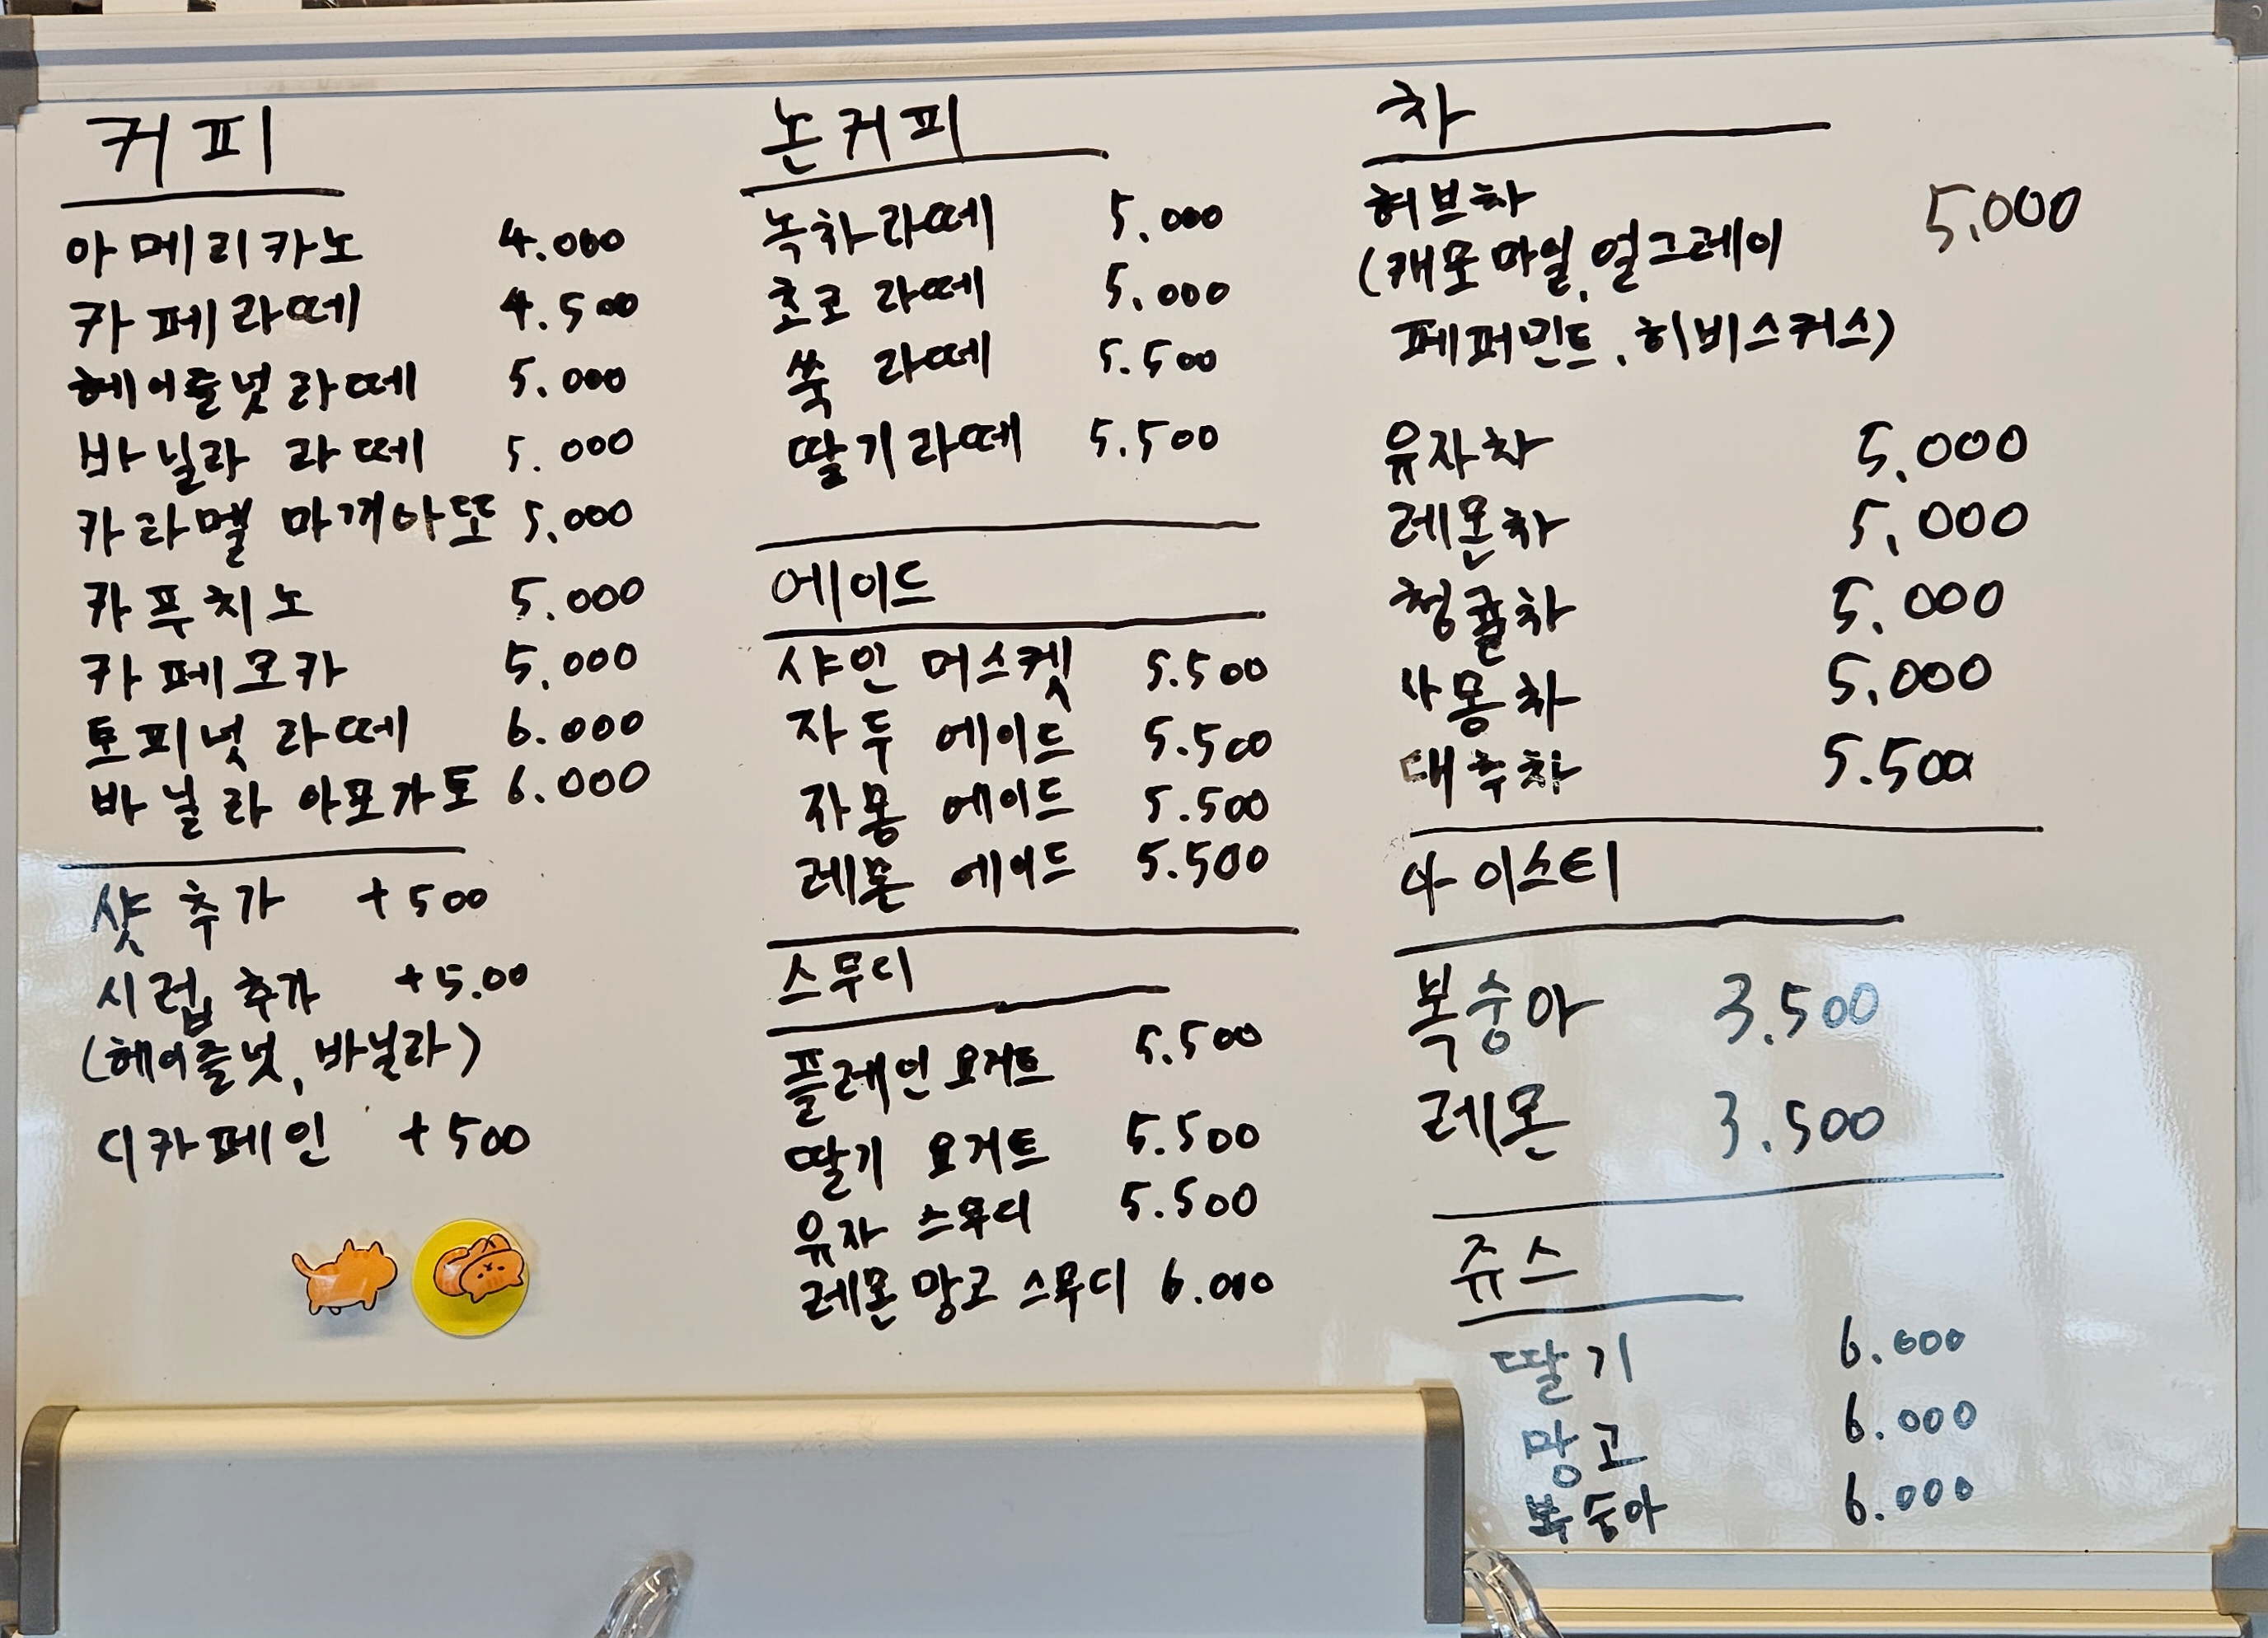 커피
아메리카노 4.000
카페라떼 4.500
헤이즐넛라떼 5.000
바닐라 라떼 5.000
카라멜 마끼아또 5.000
카푸치노 5.000
카페모카 5.000
토피넛 라떼 6.000
바닐라 아포가토 6.000
샷 추가 +500
시럽 추가 +5.00
(헤이즐넛, 바닐라)
디카페인 +500
논커피
녹차라떼 5.000
초코 라떼 5.000
쑥 라떼 5.500
딸기라떼 5.500
에이드
샤인 머스켓 5.500
자두 에이드 5.500
자몽 에이드 5.500
레몬 에이드 5.500
스무디
플레인 요거트 5.500
딸기 요거트 5.500
유자 스무디 5.500
레몬 망고 스무디 6.000
차
허브차 5,000
(캐모마일, 얼그레이
페퍼민트, 히비스커스)
유자차 5,000
레몬차 5,000
청귤차 5,000
자몽차 5,000
대추차 5.500
아이스티
복숭아 3.500
레몬 3.500
쥬스
딸기 6.000
망고 6.000
복숭아 6.000